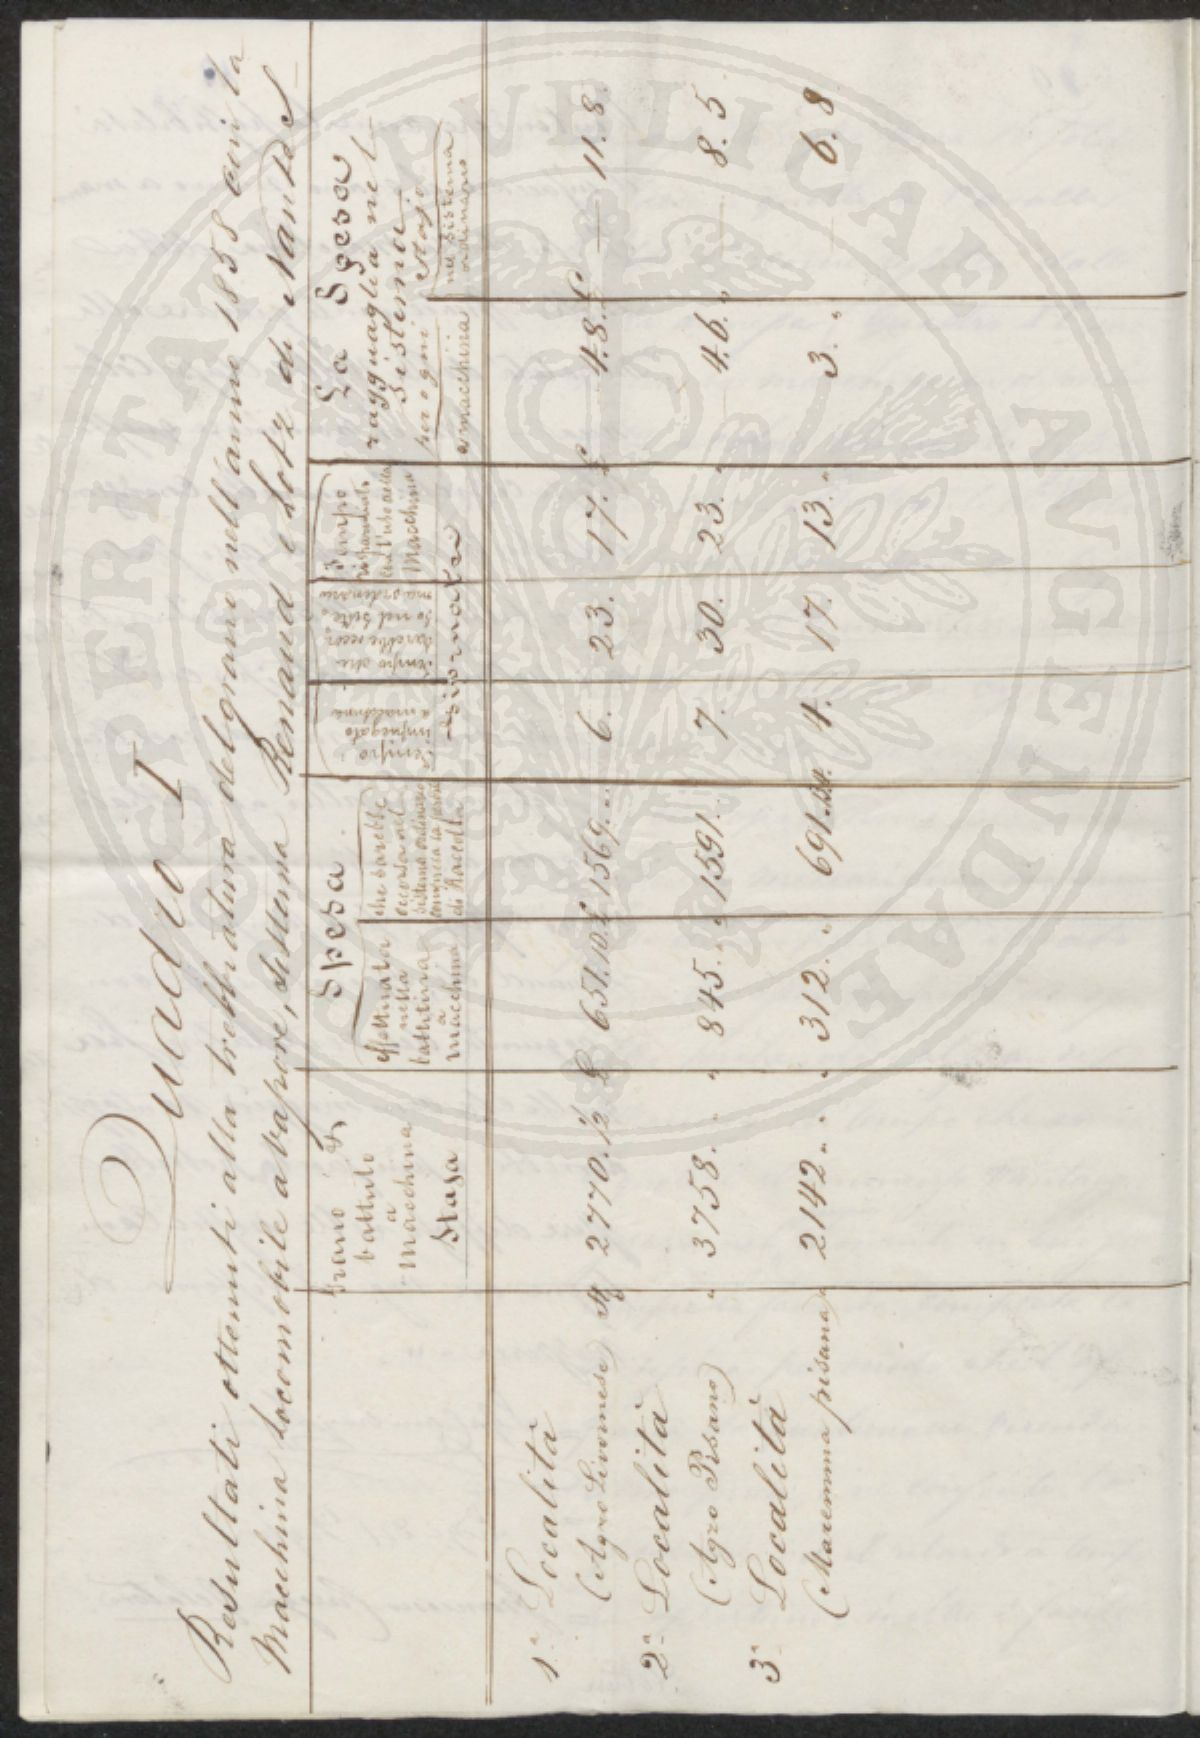 Quadro I
Resultati ottenuti alla trebbiatura del grano nell'anno 1858 con la
Macchina locomobile a vapore, sistema Renaud e Lotz di Nantes
Grano
battuto
a
Macchina
Staja
Spesa
effettuata
nella
battitura
a
macchina
che sarebbe
occorsa nel
sistema ordinario
di Raccolta
Tempo
impiegato
a macchina
Tempo che
sarebbe occor
so nel siste
ma ordinario
Tempo
risparmiato
con l'uso della
Macchina
Giornate
La Spesa
ragguaglia nel
sistema
per ogni Stajo
a macchina
nel sistema
ordinario
1ª Località
(Agro Livornese) 2770.½ £ 651.10. £ 1569. 6. 23. 17. £ 4.8. £ — 11.8.
2ª Località
(Agro Pisano) " 3758. " " 845. " " 1591. 7. 30. 23. " 4.6. " — 8.5
3ª Località
(Maremma pisana) " 2142. " " 312. " 691. 4. 17. 13. " 3. " — 6.8
PROSPERITATI PVBLICAE AVGENDAE